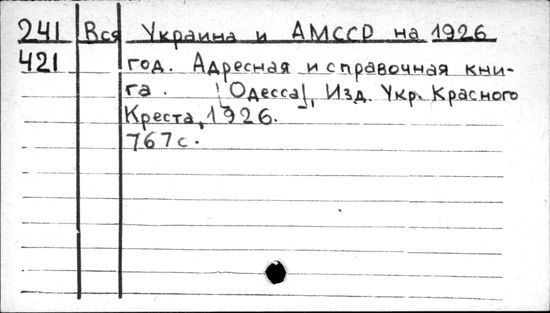 241 Вся Украина и АМССР на 1926
421 год. Адресная и справочная кни-
га. [Одесса], Изд. Укр. Красного
Креста, 1926.
767с.